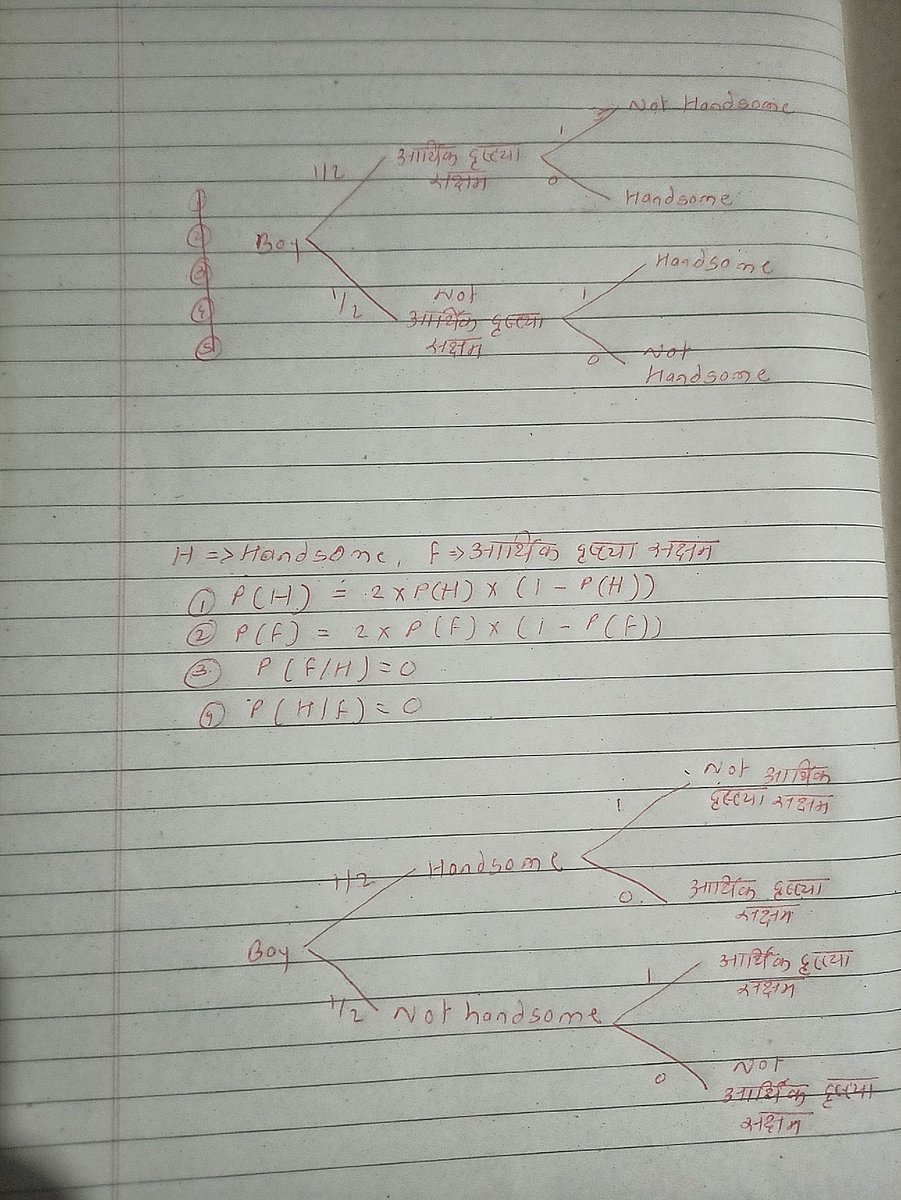 Not Handsome
1
1/2
आर्थिक दृष्ट्या
सक्षम
0
Handsome
1
2
3
4
5
Boy
Handsome
1
1/2
Not
आर्थिक दृष्ट्या
सक्षम
0
Not
Handsome
H => Handsome, F => आर्थिक दृष्ट्या सक्षम
① P(H) = 2 x P(H) x (1 - P(H))
② P(F) = 2 x P(F) x (1 - P(F))
③ P(F/H) = 0
④ P(H/F) = 0
Not आर्थिक
दृष्ट्या सक्षम
1
1/2
Handsome
0
आर्थिक दृष्ट्या
सक्षम
Boy
आर्थिक दृष्ट्या
सक्षम
1
1/2
Not handsome
0
Not
आर्थिक दृष्ट्या
सक्षम